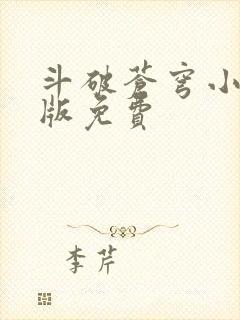 斗破苍穹小
版免费
李芹